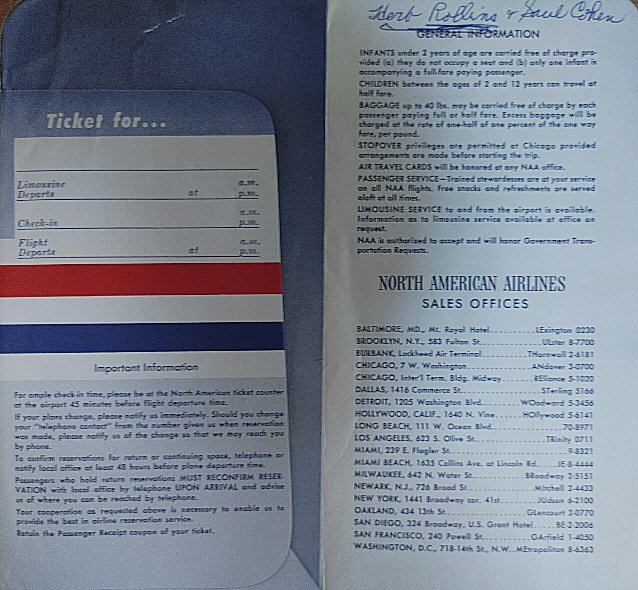 Ticket for...
Limousine
Departs at a.m. p.m.
a.m.
Check-in p.m.
Flight
Departs at a.m. p.m.
Important Information
For ample check-in time, please be at the North American ticket counter
at the airport 45 minutes before flight departure time.
If your plans change, please notify us immediately. Should you change
your "telephone contact" from the number given us when reservation
was made, please notify us of the change so that we may reach you
by phone.
To confirm reservations for return or continuing space, telephone or
notify local office at least 48 hours before plane departure time.
Passengers who hold return reservations MUST RECONFIRM RESER-
VATION with local office by telephone UPON ARRIVAL and advise
us of where you can be reached by telephone.
Your cooperation as requested above is necessary to enable us to
provide the best in airline reservation service.
Retain the Passenger Receipt coupon of your ticket.
Herb Rollins & Saul Cohen
GENERAL INFORMATION
INFANTS under 2 years of age are carried free of charge pro-
vided (a) they do not occupy a seat and (b) only one infant is
accompanying a full-fare paying passenger.
CHILDREN between the ages of 2 and 12 years can travel at
half fare.
BAGGAGE up to 40 lbs. may be carried free of charge by each
passenger paying full or half fare. Excess baggage will be
charged at the rate of one-half of one percent of the one way
fare, per pound.
STOPOVER privileges are permitted at Chicago provided
arrangements are made before starting the trip.
AIR TRAVEL CARDS will be honored at any NAA office.
PASSENGER SERVICE—Trained stewardesses are at your service
on all NAA flights. Free snacks and refreshments are served
aloft at all times.
LIMOUSINE SERVICE to and from the airport is available.
Information as to limousine service available at office on
request.
NAA is authorized to accept and will honor Government Trans-
portation Requests.
NORTH AMERICAN AIRLINES
SALES OFFICES
BALTIMORE, MD., Mt. Royal Hotel..........LExington 0230
BROOKLYN, N.Y., 583 Fulton St..........ULster 8-7700
BURBANK, Lockheed Air Terminal..........THornwall 2-6181
CHICAGO, 7 W. Washington..........ANdover 3-0700
CHICAGO, Inter'l Term. Bldg. Midway..........RELiance 5-1020
DALLAS, 1416 Commerce St..........STerling 5166
DETROIT, 1205 Washington Blvd..........WOodward 5-3456
HOLLYWOOD, CALIF., 1640 N. Vine..........HOllywood 5-6141
LONG BEACH, 111 W. Ocean Blvd..........70-8971
LOS ANGELES, 623 S. Olive St..........TRinity 0711
MIAMI, 239 E. Flagler St..........9-8321
MIAMI BEACH, 1635 Collins Ave. at Lincoln Rd.....JE-8-4444
MILWAUKEE, 642 N. Water St..........BRoadway 2-5151
NEWARK, N.J., 726 Broad St..........MItchell 2-4433
NEW YORK, 1441 Broadway cor. 41st..........JUdson 6-2100
OAKLAND, 434 13th St..........GLencourt 2-0770
SAN DIEGO, 324 Broadway, U.S. Grant Hotel..........BE-2-2006
SAN FRANCISCO, 240 Powell St..........GArfield 1-4050
WASHINGTON, D.C., 718-14th St., N.W...MEtropolitan 8-6363